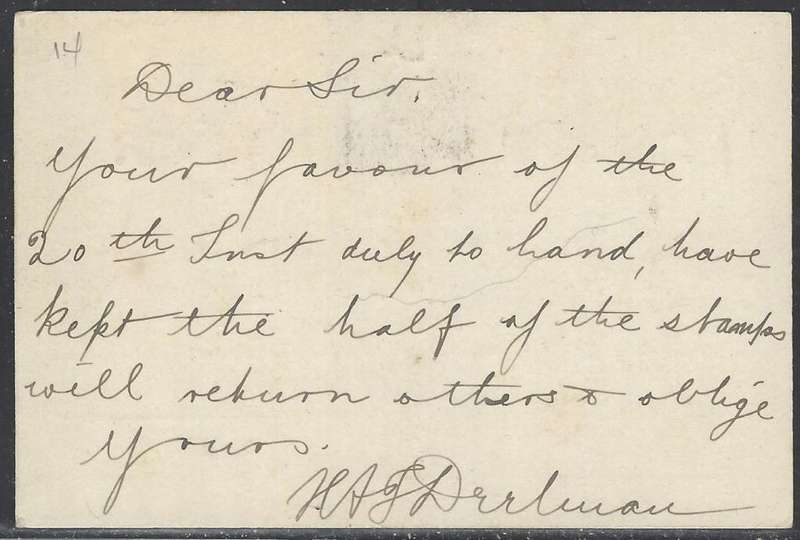 14
Dear Sir.
Your favour of the
20th Inst duly to hand, have
kept the half of the stamps
will return others & oblige
Yours.